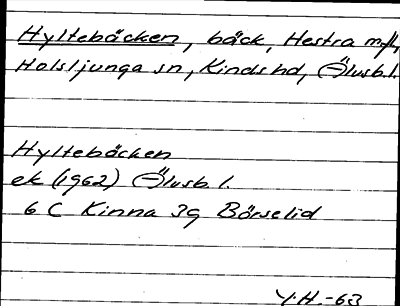 Hyltebäcken, bäck, Hestra m.fl.,
Holsljunga sn, Kinds hd, Älvsb.l.
Hyltebäcken
ek (1962) Älvsb. l.
6 C Kinna 3g Börselid
Y.H.-63